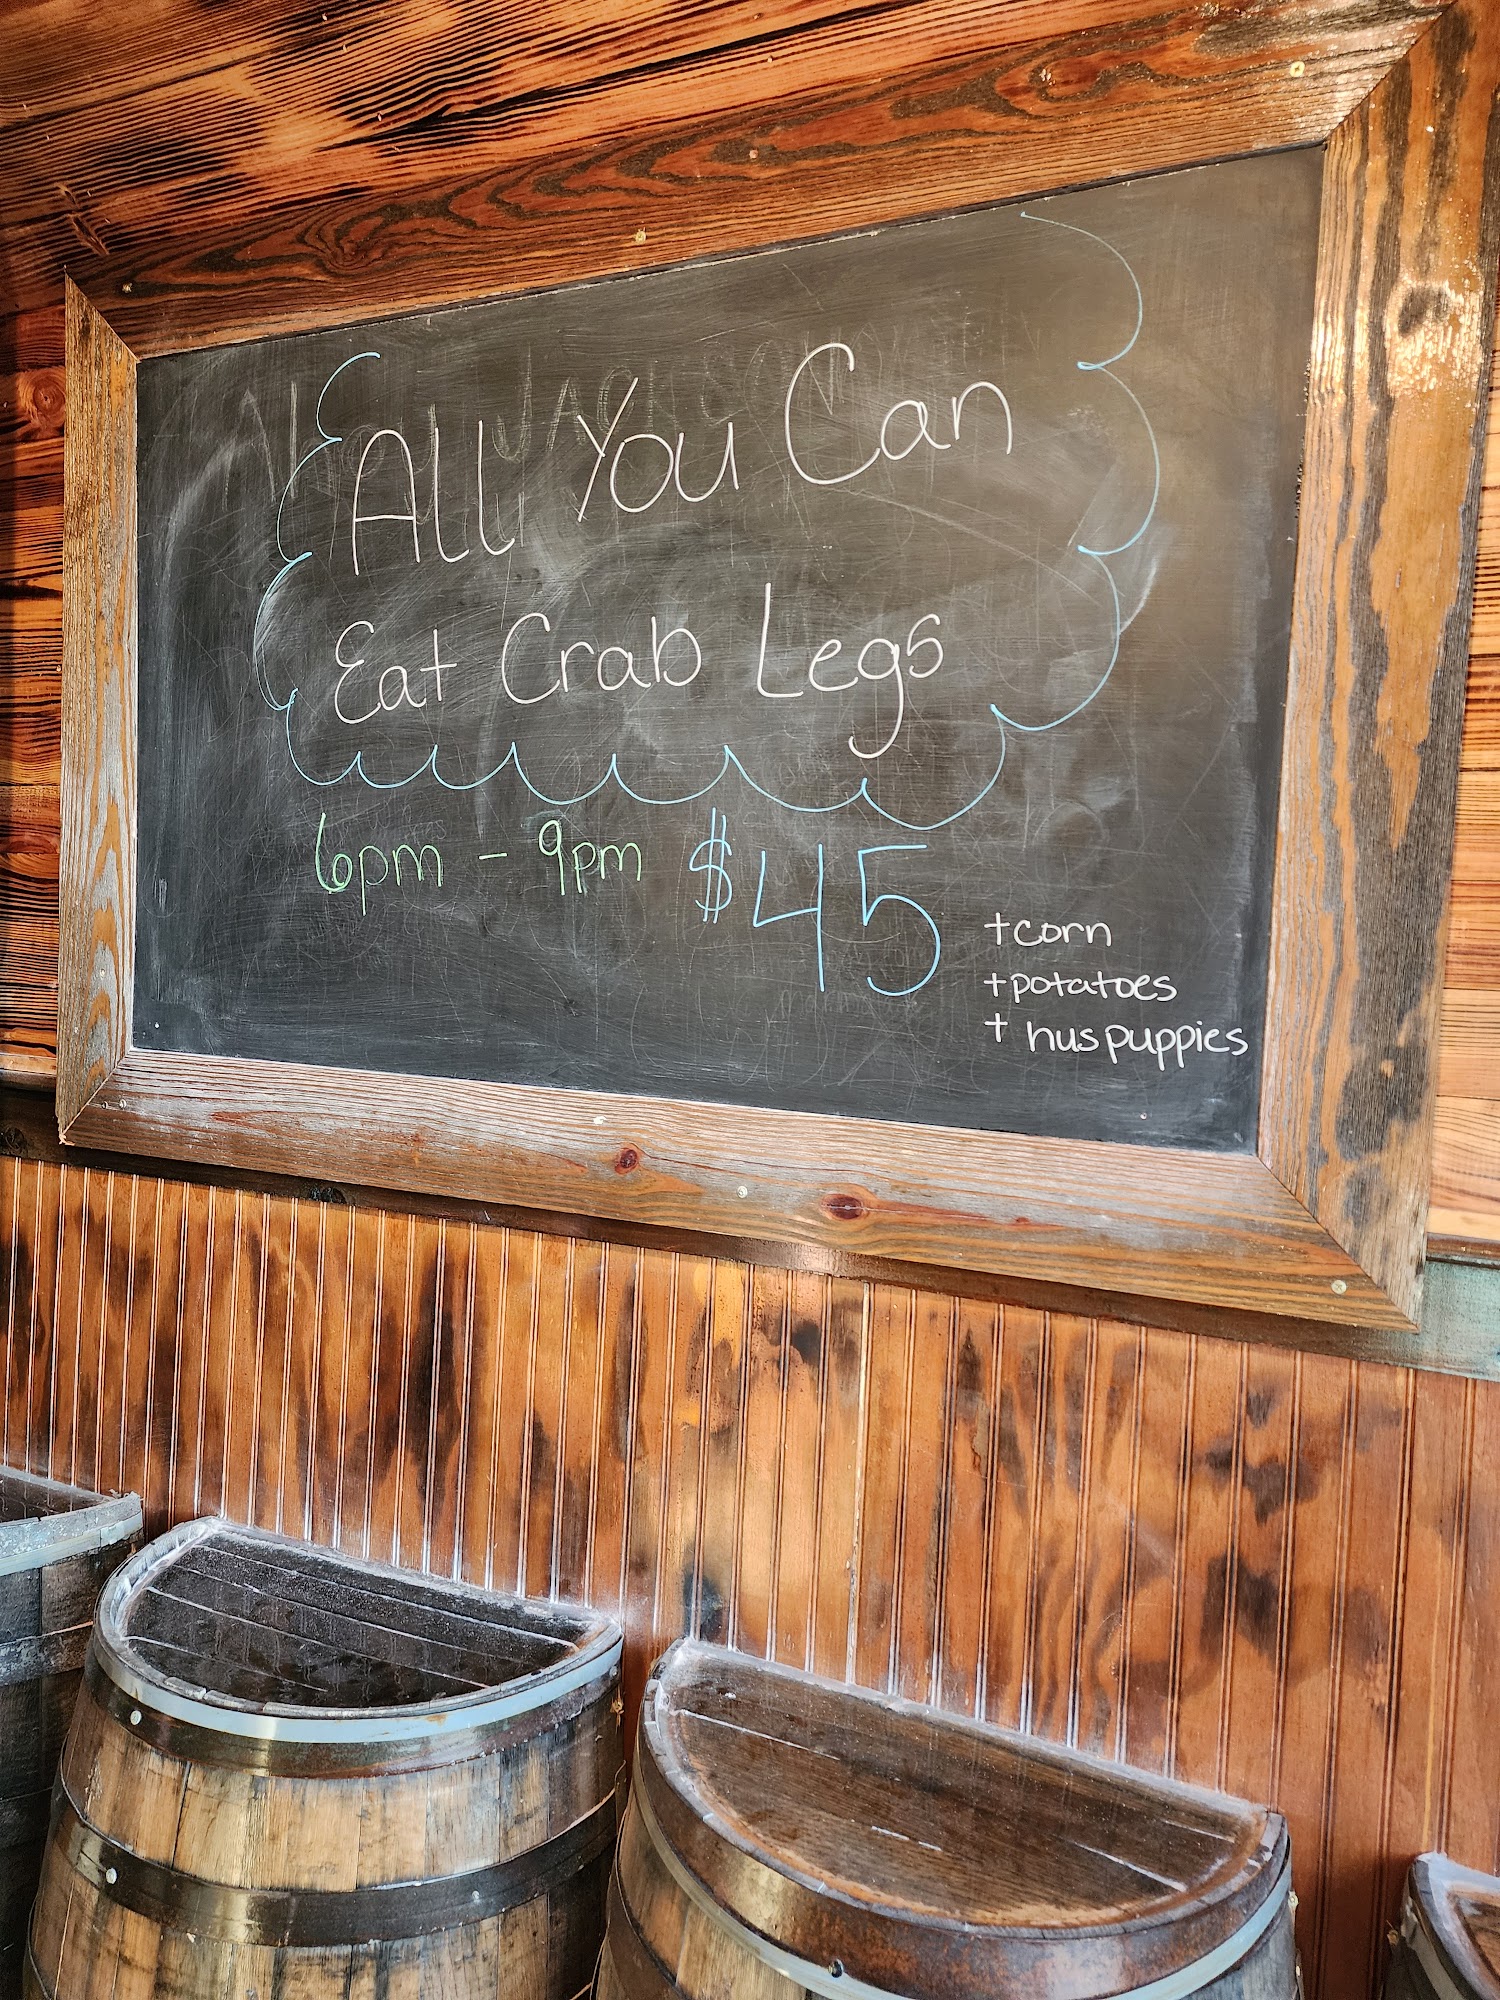 All You Can
Eat Crab Legs
6pm - 9pm $45
+corn
+potatoes
+ huspuppies